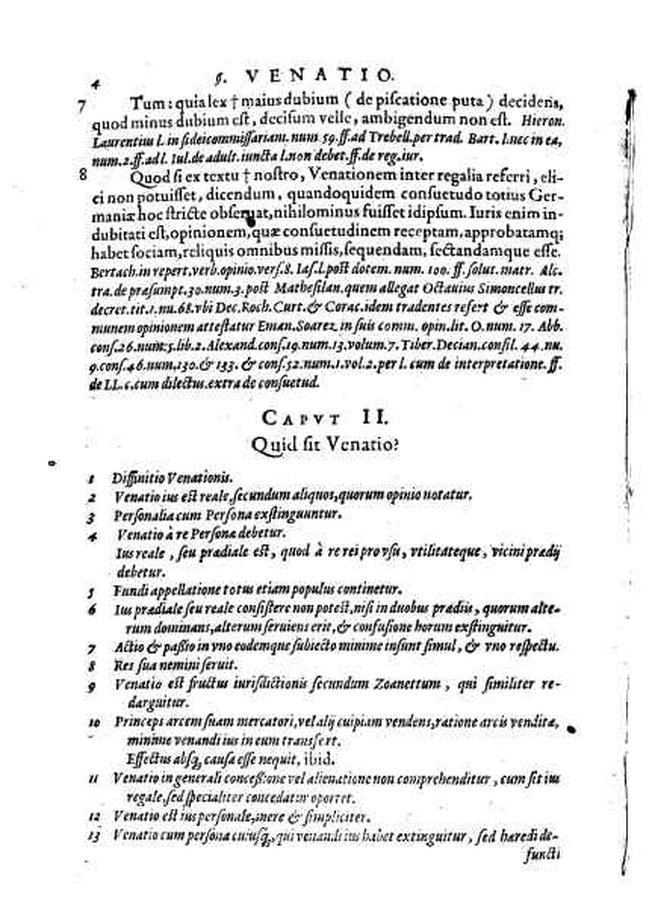 4
§. VENATIO.
7 Tum: quia lex † maius dubium ( de piscatione puta ) decidens,
quod minus dubium est, decisum velle, ambigendum non est. Hieron.
Laurentius l. in fideicommissariam. num. 59. ff. ad Trebell. per trad. Bart. l. nec in ea,
num. 2. ff. ad l. Iul. de adult. iuncta l. non debet. ff. de reg. iur.
8 Quod si ex textu † nostro, Venationem inter regalia referri, eli-
ci non potuisset, dicendum, quandoquidem consuetudo totius Ger-
maniæ hoc stricte observat, nihilominus fuisset idipsum. Iuris enim in-
dubitati est, opinionem, quæ consuetudinem receptam, approbatamq;
habet sociam, reliquis omnibus missis, sequendam, sectandamque esse.
Bertach. in repert. verb. opinio. vers. 8. Ias. l. post dotem. num. 100. ff. solut. matr. Alc.
tra. de præsumpt. 30. num. 3. post Mathesilan. quem allegat Octauius Simoncellus tr.
decret. tit. 1. nu. 68. vbi Dec. Roch. Curt. & Corac. idem tradentes refert & esse com-
munem opinionem attestatur Eman. Soarez. in suis comm. opin. lit. O. num. 17. Abb.
cons. 26. num: 5. lib. 2. Alexand. cons. 19. num. 13. volum. 7. Tiber. Decian. consil. 44. nu.
9. cons. 46. num. 130. & 133. & cons. 52. num. 1. vol. 2. per l. cum de interpretatione. ff.
de LL. c. cum dilectus. extra de consuetud.
CAPVT II.
Quid sit Venatio?
1 Diffinitio Venationis.
2 Venatio ius est reale, secundum aliquos, quorum opinio notatur.
3 Personalia cum Persona exstinguuntur.
4 Venatio à re Personæ debetur.
Ius reale, seu prædiale est, quod à re rei pro vsu, vtilitateque, vicini prædij
debetur.
5 Fundi appellatione totus etiam populus continetur.
6 Ius prædiale seu reale consistere non potest, nisi in duobus prædiis, quorum alte-
rum dominans, alterum seruiens erit, & confusione horum exstinguitur.
7 Actio & passio in vno eodemque subiecto minime insunt simul, & vno respectu.
8 Res sua nemini seruit.
9 Venatio est fructus iurisdictionis secundum Zoanettum, qui similiter re-
darguitur.
10 Princeps arcem suam mercatori, vel alij cuipiam vendens, ratione arcis venditæ,
minime venandi ius in eum transfert.
Effectus absq; causa esse nequit, ibid.
11 Venatio in generali concessione vel alienatione non comprehenditur, cum sit ius
regale, sed specialiter concedatur oportet.
12 Venatio est ius personale, mere & simpliciter.
13 Venatio cum persona cuiusq;, qui venandi ius habet extinguitur, sed hæredi de-
functi